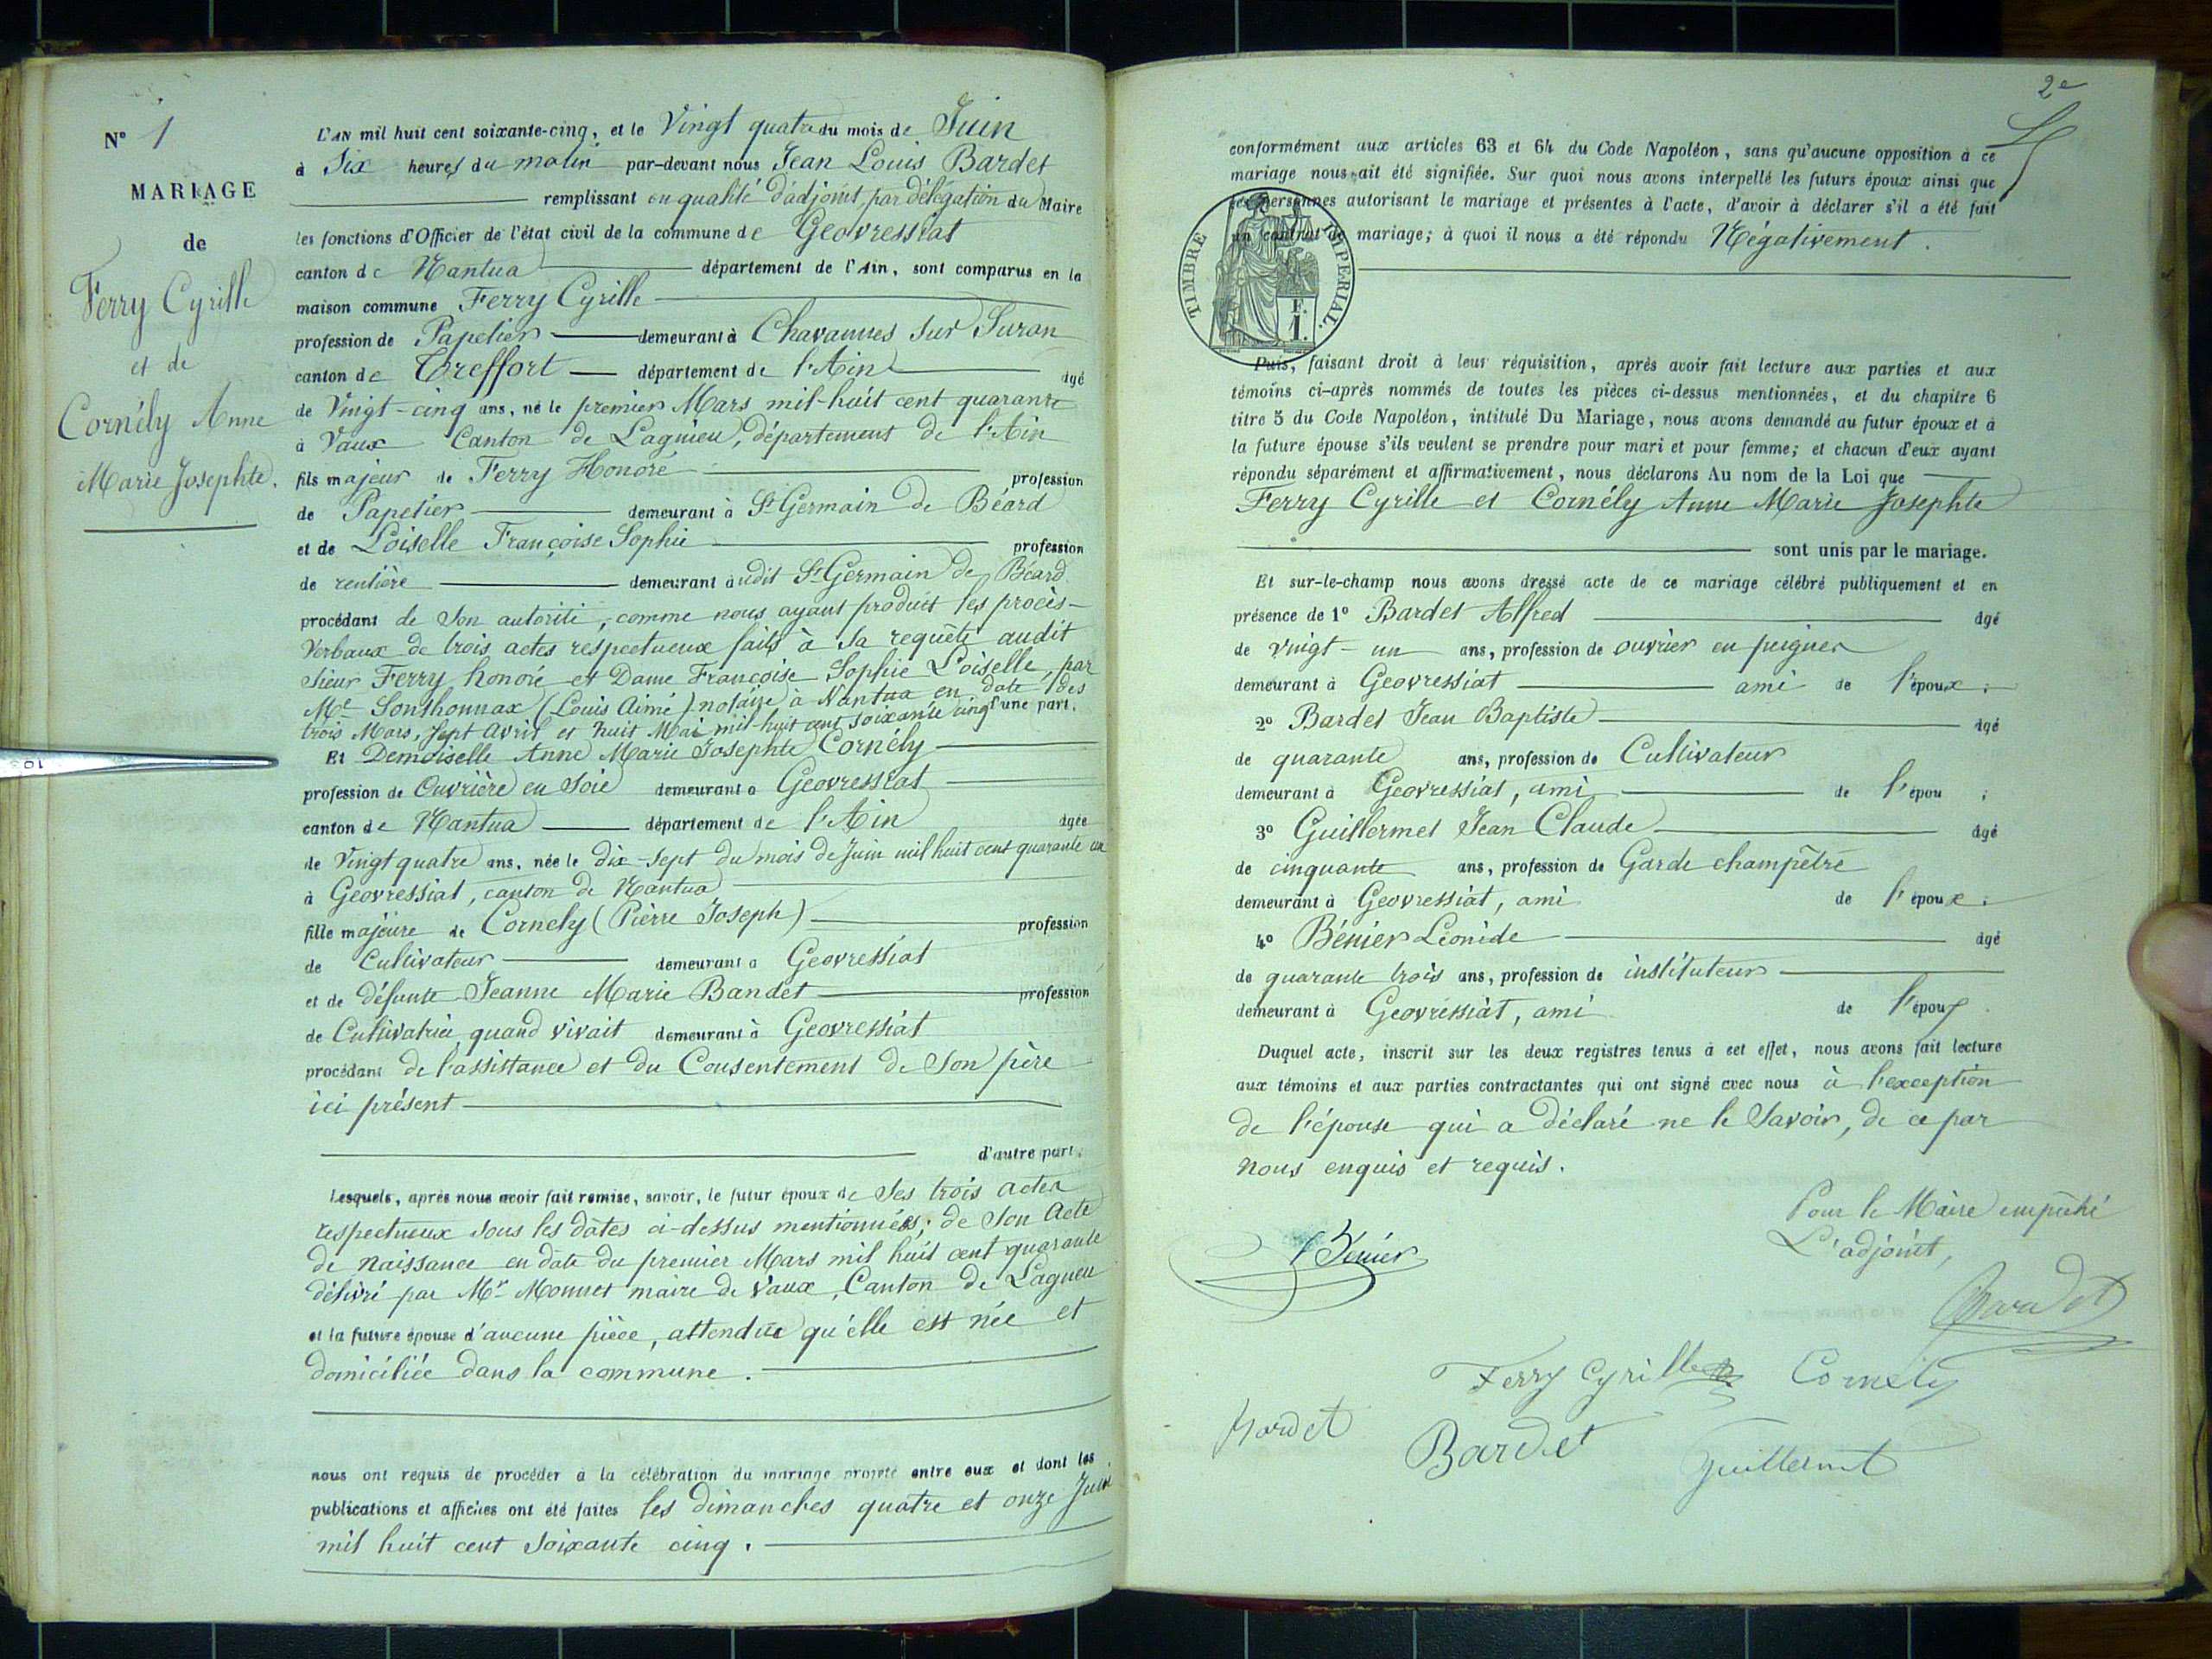 N° 1
MARIAGE
de
Ferry Cyrille
et de
Cornély Anne
Marie Josephte.
L'AN mil huit cent soixante-cinq, et le Vingt quatre du mois de Juin
à Six heures du matin par-devant nous Jean Louis Bardet
remplissant en qualité d'adjoint par délégation du Maire
les fonctions d'Officier de l'état civil de la commune de Geovressiat
canton de Nantua département de l'Ain, sont comparus en la
maison commune Ferry Cyrille
profession de Papetier demeurant à Chavannes sur Suran
canton de Treffort département de l'Ain âgé
de Vingt-cinq ans, né le premier Mars mil-huit cent quarante
à Vaux Canton de Lagnieu, département de l'Ain
fils majeur de Ferry Honoré profession
de Papetier demeurant à St Germain de Béard
et de Loiselle Françoise Sophie profession
de rentière demeurant àudit St Germain de Béard
procédant de son autorité, comme nous ayant produit les procès-
Verbaux de trois actes respectueux faits à sa requête audit
sieur Ferry honoré et Dame Françoise Sophie Loiselle, par
Me Sonthonnax (Louis Aimé) notaire à Nantua en date des
trois Mars, sept Avril et huit Mai mil-huit cent soixante cinq d'une part.
Et Demoiselle Anne Marie Josephte Cornély
profession de Ouvrière en Soie demeurant à Geovressiat
canton de Nantua département de l'Ain âgée
de Vingt quatre ans, née le dix-sept du mois de Juin mil huit cent quarante un
à Geovressiat, canton de Nantua
fille majeure de Cornely (Pierre Joseph) profession
de Cultivateur demeurant à Geovressiat
et de défunte Jeanne Marie Bandet profession
de Cultivatrice quand vivait demeurant à Geovressiat
procédant de l'assistance et du Consentement de Son père
ici présent
d'autre part;
Lesquels, après nous avoir fait remise, savoir, le futur époux de Ses trois actes
respectueux sous les dates ci-dessus mentionnées; de Son Acte
de naissance en date du premier Mars mil huit cent quarante
délivré par Mr Monnet maire de Vaux, Canton de Lagneu
et la future épouse d'aucune pièce, attendue qu'elle est née et
domiciliée dans la commune.
nous ont requis de procéder à la célébration du mariage projeté entre eux et dont les
publications et affiches ont été faites les dimanches quatre et onze Juin
mil huit cent soixante cinq.
2e
conformément aux articles 63 et 64 du Code Napoléon, sans qu'aucune opposition à ce
mariage nous ait été signifiée. Sur quoi nous avons interpellé les futurs époux ainsi que
les personnes autorisant le mariage et présentes à l'acte, d'avoir à déclarer s'il a été fait
un contrat de mariage; à quoi il nous a été répondu Négativement.
TIMBRE IMPERIAL.
F.
1.
Puis, faisant droit à leur réquisition, après avoir fait lecture aux parties et aux
témoins ci-après nommés de toutes les pièces ci-dessus mentionnées, et du chapitre 6
titre 5 du Code Napoléon, intitulé Du Mariage, nous avons demandé au futur époux et à
la future épouse s'ils veulent se prendre pour mari et pour femme; et chacun d'eux ayant
répondu séparément et affirmativement, nous déclarons Au nom de la Loi que
Ferry Cyrille et Cornély Anne Marie Josephte
sont unis par le mariage.
Et sur-le-champ nous avons dressé acte de ce mariage célébré publiquement et en
présence de 1° Bardet Alfred âgé
de vingt-un ans, profession de ouvrier en peignes
demeurant à Geovressiat ami de l'époux;
2° Bardet Jean Baptiste âgé
de quarante ans, profession de Cultivateur
demeurant à Geovressiat, ami de l'épou ;
3° Guillermet Jean Claude âgé
de cinquante ans, profession de Garde champêtre
demeurant à Geovressiat, ami de l'époux;
4° Bénier Léonide âgé
de quarante trois ans, profession de instituteur
demeurant à Geovressiat, ami de l'époux
Duquel acte, inscrit sur les deux registres tenus à cet effet, nous avons fait lecture
aux témoins et aux parties contractantes qui ont signé avec nous à l'exception
de l'épouse qui a déclaré ne le Savoir, de ce par
nous enquis et requis.
Pour le Maire empêché
L'adjoint,
Bénier
Bardet
Ferry Cyrille Cornely
Bardet
Bardet
Guillermet